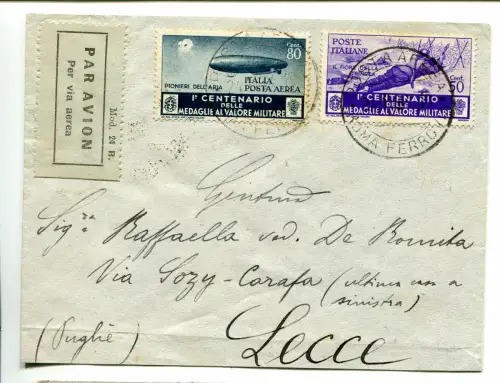 PAR AVION
Per via aerea
Mod. 24 R.
Cent. 80
PIONIERI DELL'ARIA
ITALIA
POSTA AEREA
I° CENTENARIO
DELLE
MEDAGLIE AL VALORE MILITARE
POSTE
ITALIANE
Cent. 50
I° CENTENARIO
DELLE
MEDAGLIE AL VALORE MILITARE
POSTA AEREA
ROMA FERROVIA
Gent.ma
Sig.ra Raffaella ved. De Bonita
Via Sozy-Carafa (ultima casa a
sinistra)
(Puglie) Lecce